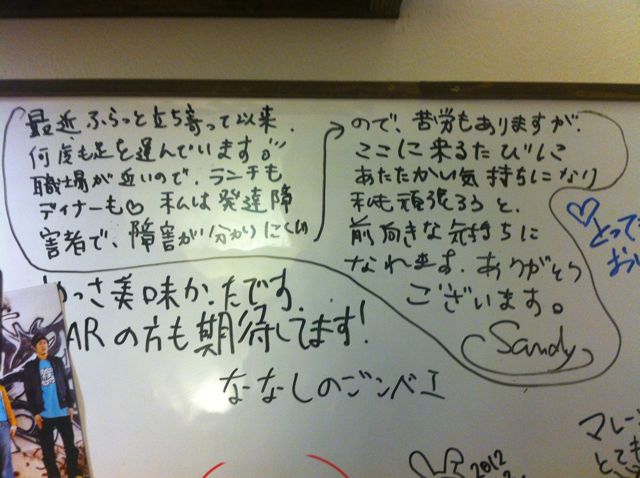 最近、ふらっと立ち寄って以来、
何度も足を運んでいます。
職場が近いので、ランチも
ディナーも♡ 私は発達障
害者で、障害が分かりにくい
ので、苦労もありますが、
ここに来るたびに
あたたかい気持ちになり
私も頑張ろうと、
前向きな気持ちに
なれます。ありがとう
ございます。
Sandy
めっさ美味かったです。
BARの方も期待してます!
ななしのごンベエ
♡とって
おい
2012
マレー
とても